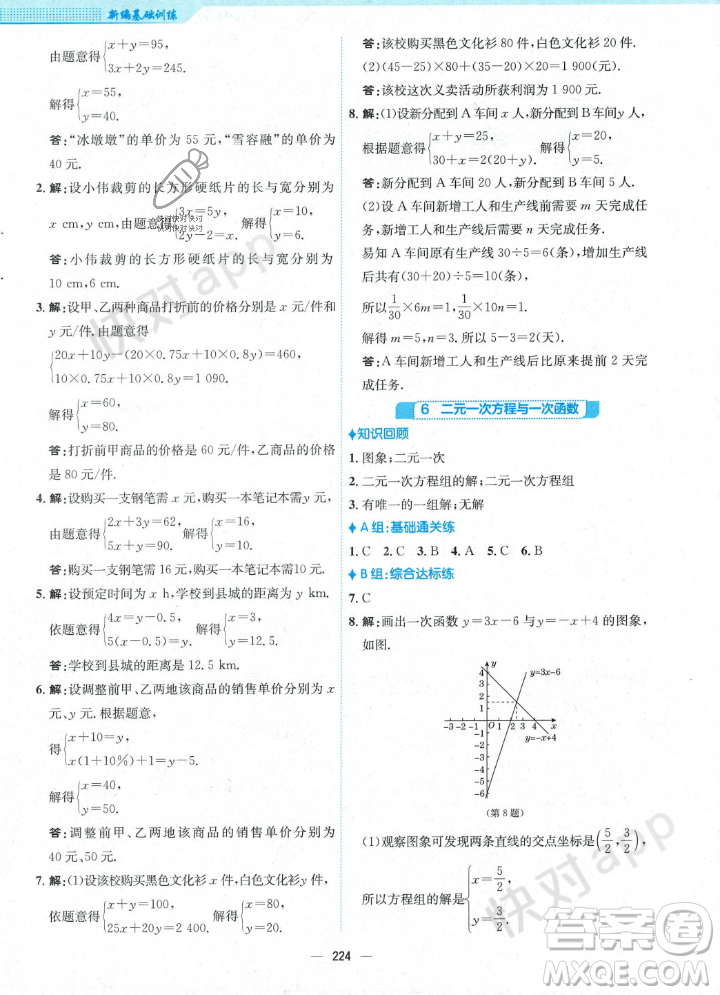 新编基础训练
由题意得{x+y=95,
3x+2y=245.
解得{x=55,
y=40.
答:“冰墩墩”的单价为 55 元,“雪容融”的单价为
40 元.
2. 解:设小伟裁剪的长方形硬纸片的长与宽分别为
x cm,y cm,由题意得{3x=5y,
2y-2=x.
解得{x=10,
y=6.
答:小伟裁剪的长方形硬纸片的长与宽分别为
10 cm,6 cm.
3. 解:设甲、乙两种商品打折前的价格分别是 x 元/件和
y 元/件.由题意得
{20x+10y-(20×0.75x+10×0.85y)=460,
10×0.75x+20×0.85y=1 090.
解得{x=60,
y=80.
答:打折前甲商品的价格是 60 元/件,乙商品的价格
是 80 元/件.
4. 解:设购买一支钢笔需 x 元,购买一本笔记本需 y 元.
由题意得{2x+3y=62,
5x+y=90.
解得{x=16,
y=10.
答:购买一支钢笔需 16 元,购买一本笔记本需10元.
5. 解:设预定时间为 x h,学校到县城的距离为 y km.
依题意得{4x=y-0.5,
5(x-0.5)=y.
解得{x=3,
y=12.5.
答:学校到县城的距离是 12.5 km.
6. 解:设调整前甲、乙两地该商品的销售单价分别为 x
元、y 元.根据题意,
得{x+10=y,
x(1+10%)+1=y-5.
解得{x=40,
y=50.
答:调整前甲、乙两地该商品的销售单价分别为
40 元、50 元.
7. 解:(1)设该校购买黑色文化衫 x 件,白色文化衫 y 件,
依题意得{x+y=100,
25x+20y=2 400.
解得{x=80,
y=20.
答:该校购买黑色文化衫 80 件,白色文化衫 20 件.
(2)(45-25)×80+(35-20)×20=1 900(元).
答:该校这次义卖活动所获利润为 1 900 元.
8. 解:(1)设新分配到 A 车间 x 人,新分配到 B 车间y 人,
根据题意得{x+y=25,
30+x=2(20+y).
解得{x=20,
y=5.
答:新分配到 A 车间 20 人,新分配到 B 车间 5 人.
(2)设 A 车间新增工人和生产线前需要 m 天完成任
务,新增工人和生产线后需要 n 天完成任务.
易知 A 车间原有生产线 30÷5=6(条),增加生产
线后共有(30+20)÷5=10(条),
所以1/30×6m=1,1/30×10n=1.
解得 m=5,n=3,所以 5-3=2(天).
答:A 车间新增工人和生产线后比原来提前 2 天完
成任务.
6 二元一次方程与一次函数
知识回顾
1. 图象;二元一次
2. 二元一次方程组的解;二元一次方程组
3. 有唯一的一组解;无解
A 组:基础通关练
1. C 2. C 3. B 4. A 5. C 6. B
B 组:综合达标练
7. C
8. 解:画出一次函数 y=3x-6 与 y=-x+4 的图象,
如图.
y
y=3x-6
4
3
2
1
-3 -2 -1 O 1 2 3 4 5 x
-1
-2
-3
-4
-5
-6
y=-x+4
(第 8 题)
(1)观察图象可发现两条直线的交点坐标是(5/2,3/2),
所以方程组的解是{x=5/2,
y=3/2.
224
快对app
快对app
快对快对快对
快对快对快对
答案圈
MXQE.COM